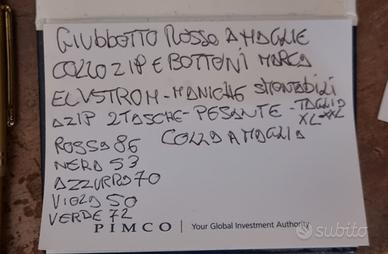 GIUBBOTTO ROSSO A MAGLIE
COLLO ZIP E BOTTONI MARCA
ELVSTROM - MANICHE SMONTABILI
A ZIP 2 TASCHE - PESANTE - TAGLIA
XL-XXL
ROSSA 86 COLLO A MAGLIA
NERA 53
AZZURRO 70
VIOLA 50
VERDE 72
PIMCO | Your Global Investment Authority
subito